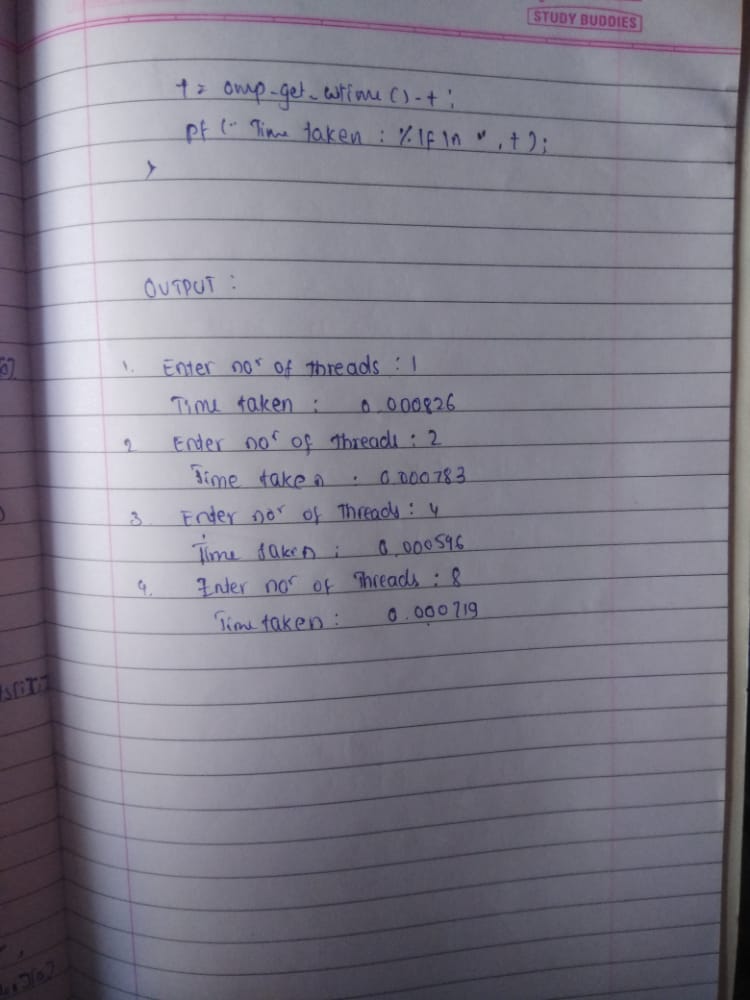 STUDY BUDDIES
t = omp_get_wtime() - t;
pf (" Time taken : %lf \n ", t);
}
OUTPUT :
1. Enter no' of threads : 1
Time taken : 0.000826
2 Enter no' of threads : 2
Time taken : 0.000783
3 Enter no' of Threads : 4
Time taken : 0.000596
4. Enter no' of Threads : 8
Time taken : 0.000719